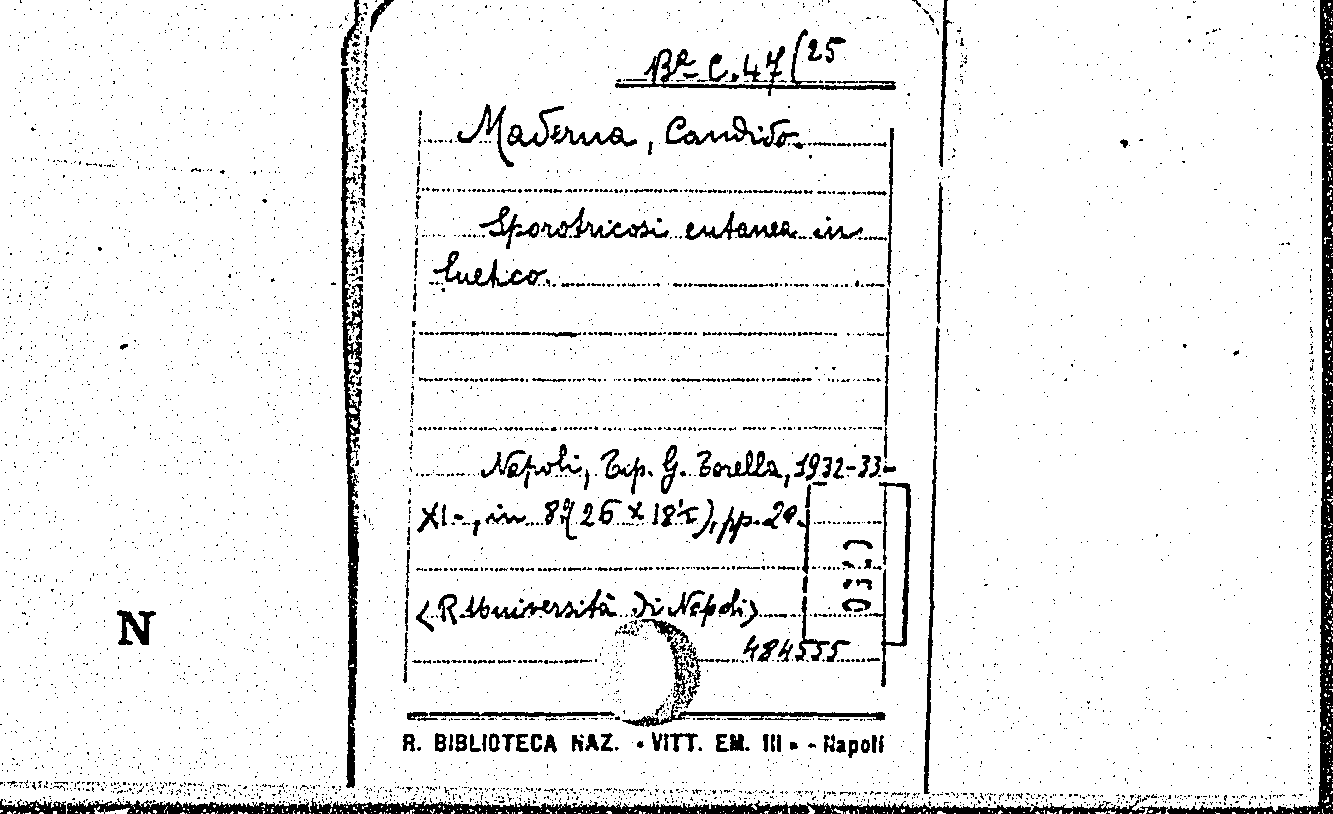 Ba C.47(25
Maderna, Candido.
Sporotricosi cutanea in
luetico.
Napoli, Tip. G. Torella, 1932-33-
XI-, in 8°(26 x 18½), pp. 20.
(R. Università di Napoli)
484555
N
R. BIBLIOTECA NAZ. « VITT. EM. III » - Napoli